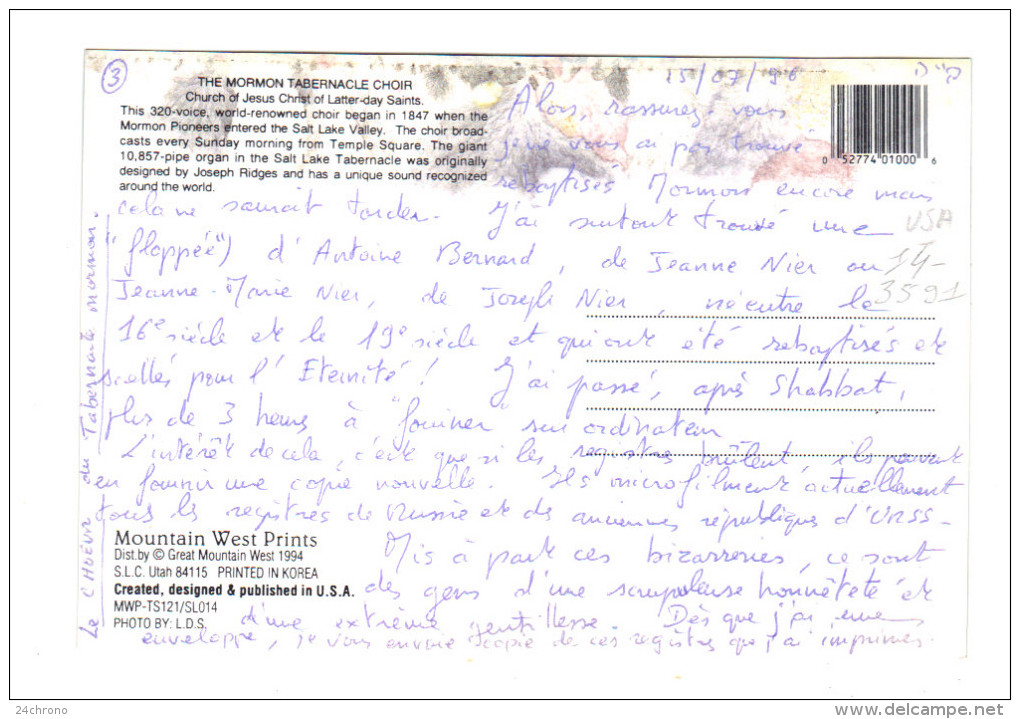 3
THE MORMON TABERNACLE CHOIR
Church of Jesus Christ of Latter-day Saints.
This 320-voice, world-renowned choir began in 1847 when the
Mormon Pioneers entered the Salt Lake Valley. The choir broad-
casts every Sunday morning from Temple Square. The giant
10,857-pipe organ in the Salt Lake Tabernacle was originally
designed by Joseph Ridges and has a unique sound recognized
around the world.
0 52774 01000 6
15/07/96 ב״ה
Alors, rassurez-vous
je ne vous ai pas trouvé
rebaptisés Mormons encore mais
cela ne saurait tarder. J'ai surtout trouvé une
("floppée") d'Antoine Bernard, de Jeanne Nier ou
Jeanne-Marie Nier, de Joseph Nier, né entre le
16e siècle et le 19e siècle et qui ont été rebaptisés et
scellés pour l'Eternité! J'ai passé, après Shabbat,
plus de 3 heures à "fouiner" sur ordinateur
L'intérêt de cela, c'est que si les registres brûlent, ils peuvent
en fournir une copie nouvelle. Ils microfilment actuellement
tous les registres de Russie et des anciennes républiques d'URSS.
Mis à part ces bizarreries, ce sont
des gens d'une scrupuleuse honnêteté et
d'une extrême gentillesse. Dès que j'ai une
enveloppe, je vous envoie copie de ces registres que j'ai imprimés.
USA
14-
3591
Le CHOEUR du Tabernacle mormon.
Mountain West Prints
Dist.by © Great Mountain West 1994
S.L.C. Utah 84115 PRINTED IN KOREA
Created, designed & published in U.S.A.
MWP-TS121/SL014
PHOTO BY: L.D.S.
24chrono
www.delcampe.net